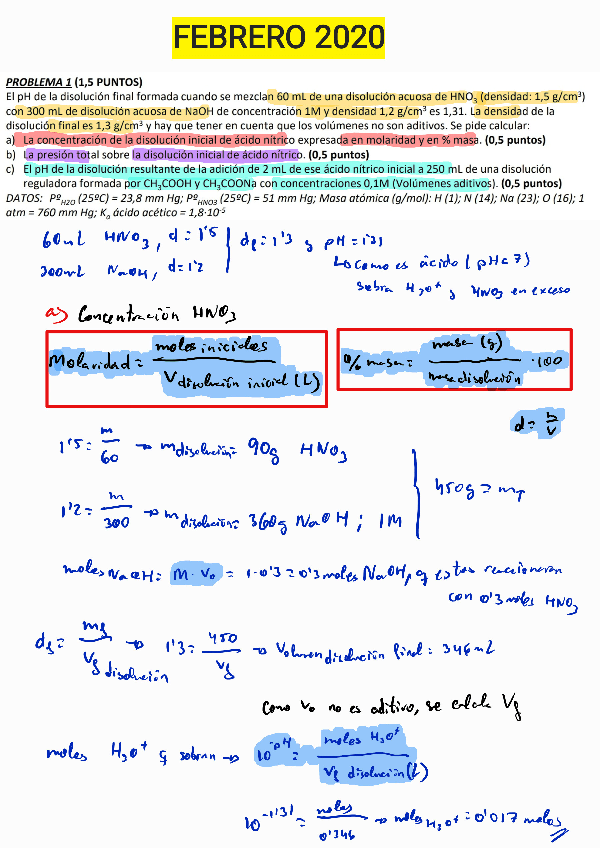 FEBRERO 2020
PROBLEMA 1 (1,5 PUNTOS)
El pH de la disolución final formada cuando se mezclan 60 mL de una disolución acuosa de HNO₃ (densidad: 1,5 g/cm³)
con 300 mL de disolución acuosa de NaOH de concentración 1M y densidad 1,2 g/cm³ es 1,31. La densidad de la
disolución final es 1,3 g/cm³ y hay que tener en cuenta que los volúmenes no son aditivos. Se pide calcular:
a) La concentración de la disolución inicial de ácido nítrico expresada en molaridad y en % masa. (0,5 puntos)
b) La presión total sobre la disolución inicial de ácido nítrico. (0,5 puntos)
c) El pH de la disolución resultante de la adición de 2 mL de ese ácido nítrico inicial a 250 mL de una disolución
reguladora formada por CH₃COOH y CH₃COONa con concentraciones 0,1M (Volúmenes aditivos). (0,5 puntos)
DATOS: Pº_H2O (25ºC) = 23,8 mm Hg; Pº_HNO3 (25ºC) = 51 mm Hg; Masa atómica (g/mol): H (1); N (14); Na (23); O (16); 1
atm = 760 mm Hg; Kₐ ácido acético = 1,8·10⁻⁵
60mL HNO₃, d=1'5 | df=1'3 y pH=1'31
300mL NaOH, d=1'2
↳ como es ácido (pH<7)
sobra H₃O⁺ y HNO₃ en exceso
a) Concentración HNO₃
Molaridad = moles iniciales / V disolución inicial (L)
% masa = masa (g) / masa disolución · 100
d = m/V
1'5 = m/60 → m disolución = 90g HNO₃
1'2 = m/300 → m disolución = 360g NaOH ; 1M
450g = mT
moles NaOH = M · Vo = 1·0'3 = 0'3 moles NaOH, q estos reaccionaran
con 0'3 moles HNO₃
df = mf / Vf disolución → 1'3 = 450/Vf → Volumen disolución final = 346mL
Como Vo no es aditivo, se calcula Vf
moles H₃O⁺ q sobran → 10^-pH = moles H₃O⁺ / Vf disolución (L)
10^-1'31 = moles / 0'346 → moles H₃O⁺ = 0'017 moles